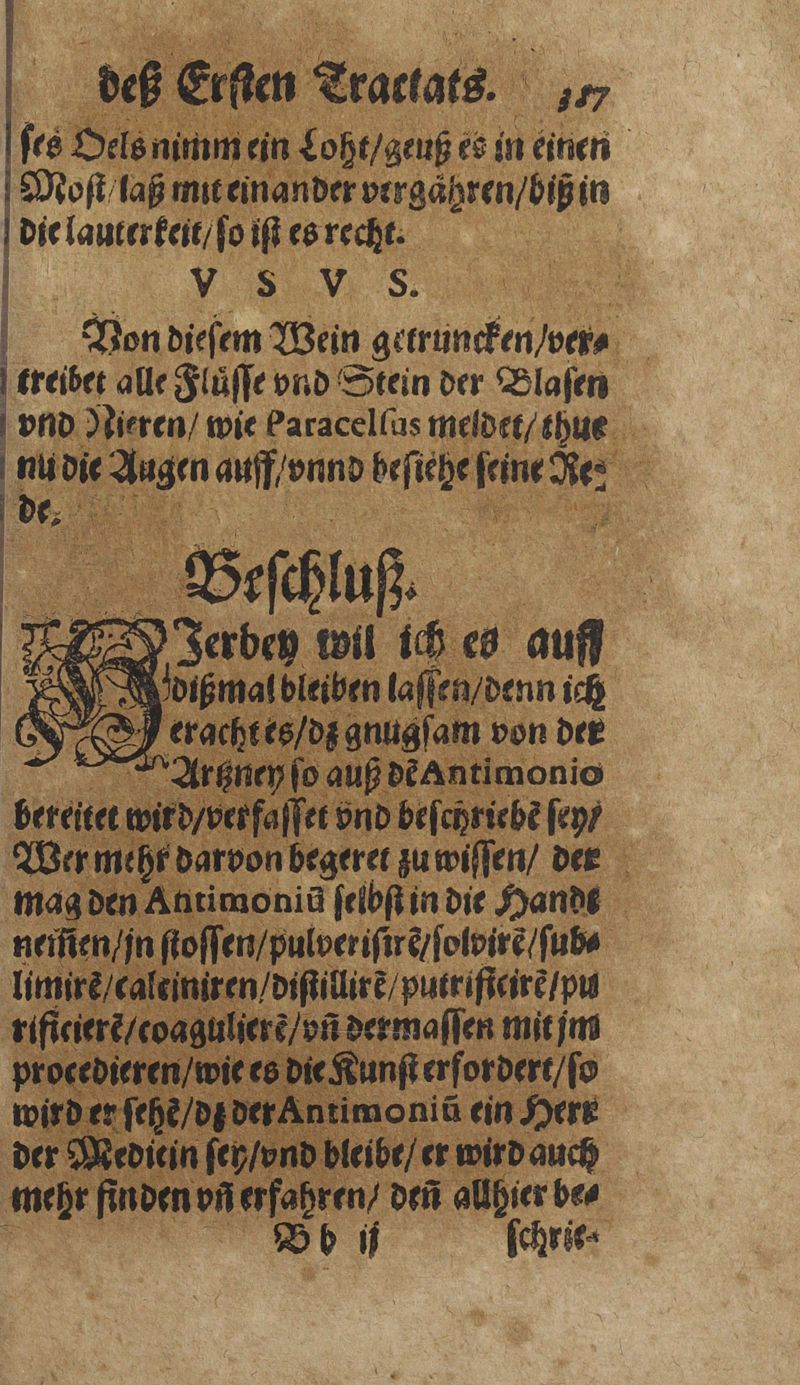 deß Ersten Tractats. 187
ses Oels nimm ein Loht/geuß es in einen
Most/laß mit einander vergähren/biß in
die lauterkeit/so ist es recht.
V S V S.
Von diesem Wein getruncken/ver-
treibet alle Flüsse vnd Stein der Blasen
vnd Nieren/ wie Paracelsus meldet/thue
nu die Augen auff/vnnd besiehe seine Re-
de.
Beschluß.
HJerbey wil ich es auff
dißmal bleiben lassen/denn ich
erachtes/dz gnugsam von der
Artzney so auß dẽ Antimonio
bereitet wird/verfasset vnd beschriebẽ sey/
Wer mehr darvon begeret zu wissen/ der
mag den Antimoniũ selbst in die Hande
nem̃en/jn stossen/pulverisirẽ/solvirẽ/sub-
limirẽ/calciniren/distillirẽ/putrificirẽ/pu
rificierẽ/coagulierẽ/vñ dermassen mit jm
procedieren/wie es die Kunst erfordert/so
wird er sehẽ/dz der Antimoniũ ein Herr
der Medicin sey/vnd bleibe/ er wird auch
mehr finden vñ erfahren/ deñ allhier be-
B b ij schrie-